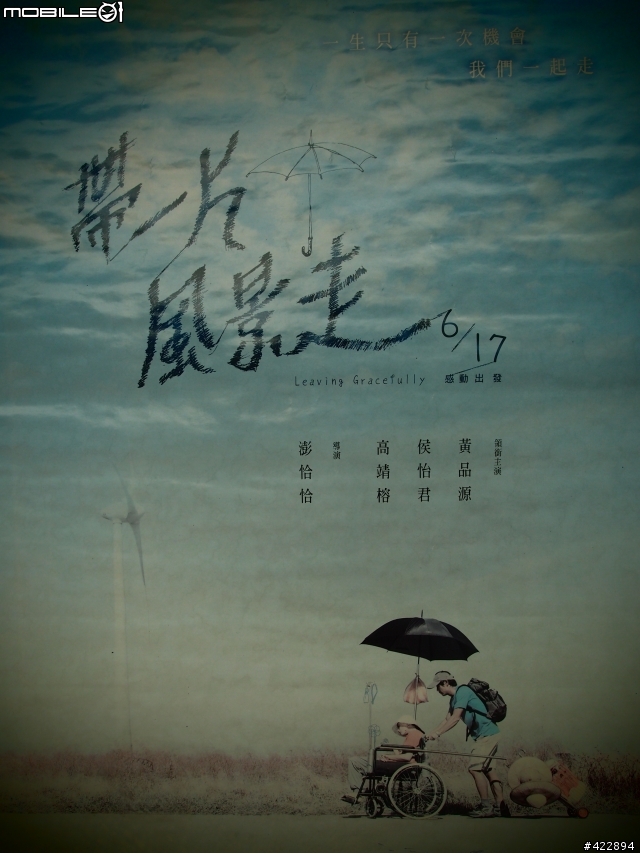 MOBILE01
一生只有一次機會
我們一起走
帶一片
風景走
6/17
Leaving Gracefully
感動出發
領銜主演
黃品源
侯怡君
高靖榕
導演
澎恰恰
#422894